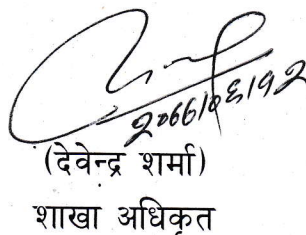 २०६६।०६।१२
(देवेन्द्र शर्मा)
शाखा अधिकृत